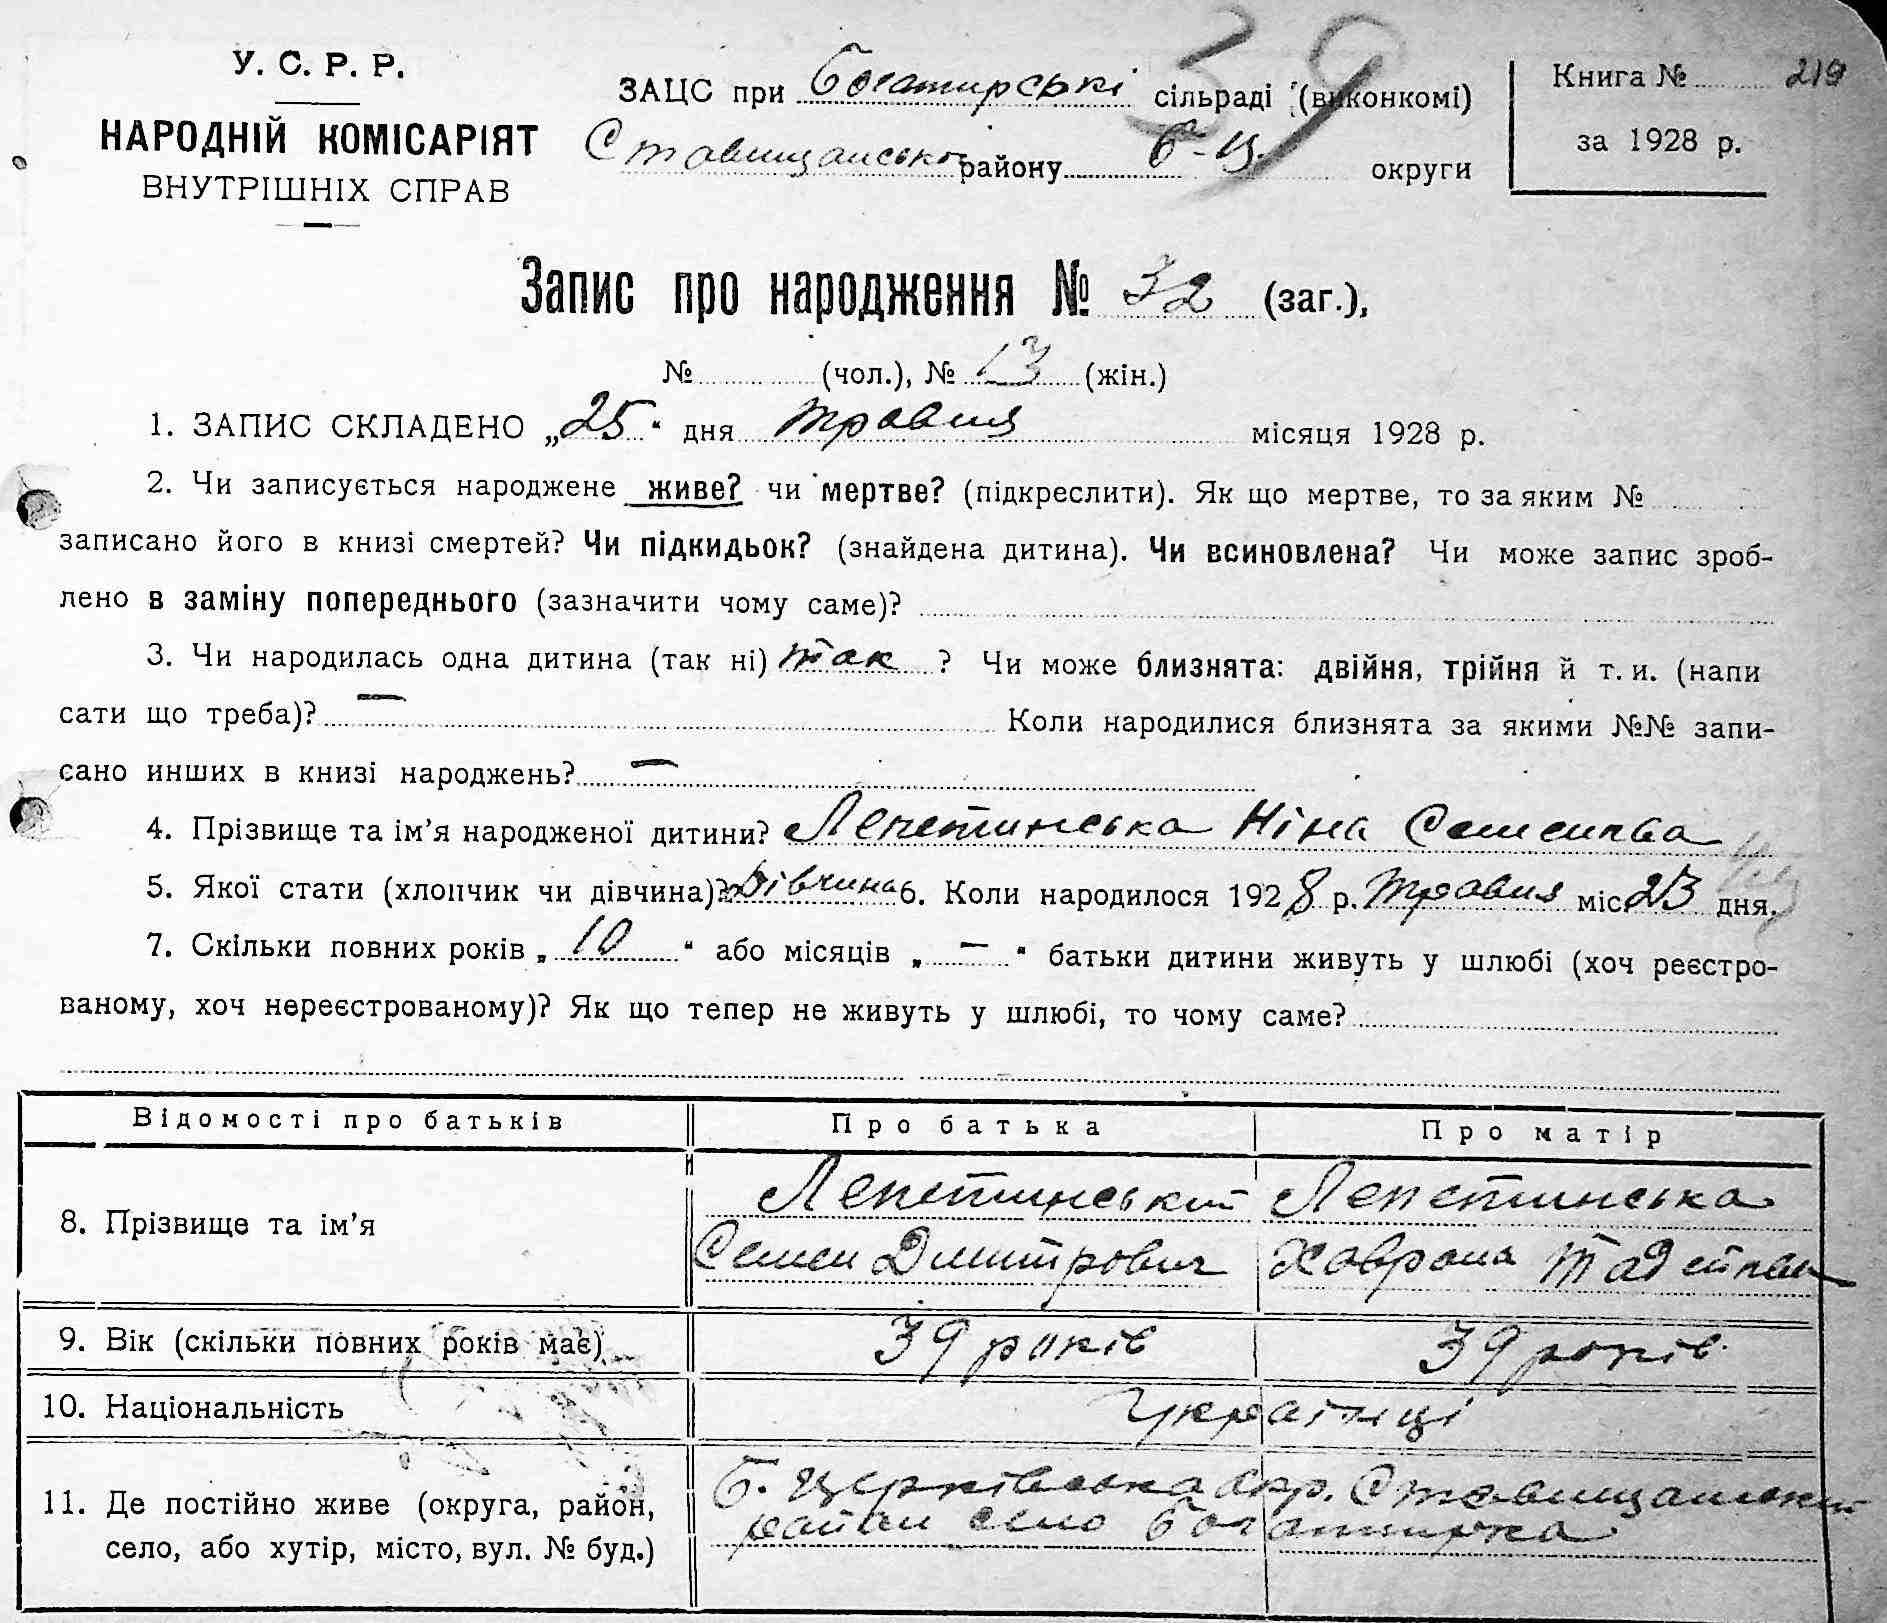 У. С. Р. Р.
НАРОДНІЙ КОМІСАРІЯТ
ВНУТРІШНІХ СПРАВ
39
ЗАЦС при Богатирські сільраді (виконкомі)
Ставищансько району Б-Ц. округи
Книга № 219
за 1928 р.
Запис про народження № 32 (заг.),
№ (чол.), № 13 (жін.)
1. ЗАПИС СКЛАДЕНО „25“ дня травня місяця 1928 р.
2. Чи записується народжене живе? чи мертве? (підкреслити). Як що мертве, то за яким №
записано його в книзі смертей? Чи підкидьок? (знайдена дитина). Чи всиновлена? Чи може запис зроб-
лено в заміну попереднього (зазначити чому саме)?
3. Чи народилась одна дитина (так ні) так ? Чи може близнята: двійня, трійня й т. и. (напи
сати що треба)? —
Коли народилися близнята за якими №№ запи-
сано инших в книзі народжень? —
4. Прізвище та ім’я народженої дитини? Лепетинська Ніна Семенівна
5. Якої стати (хлопчик чи дівчина)? Дівчина 6. Коли народилося 1928 р. Травня міс. 23 дня.
7. Скільки повних років „10“ або місяців „—“ батьки дитини живуть у шлюбі (хоч реєстро-
ваному, хоч нереєстрованому)? Як що тепер не живуть у шлюбі, то чому саме?
Відомості про батьків Про батька Про матір
8. Прізвище та ім’я
Лепетинський
Семен Дмитрович
Лепетинська
Хаврона Тадеївна
9. Вік (скільки повних років має) 39 років 39 років.
10. Національність Українці
11. Де постійно живе (округа, район,
село, або хутір, місто, вул. № буд.)
Б. Церківська окр. Ставищанський
район село Богатирка